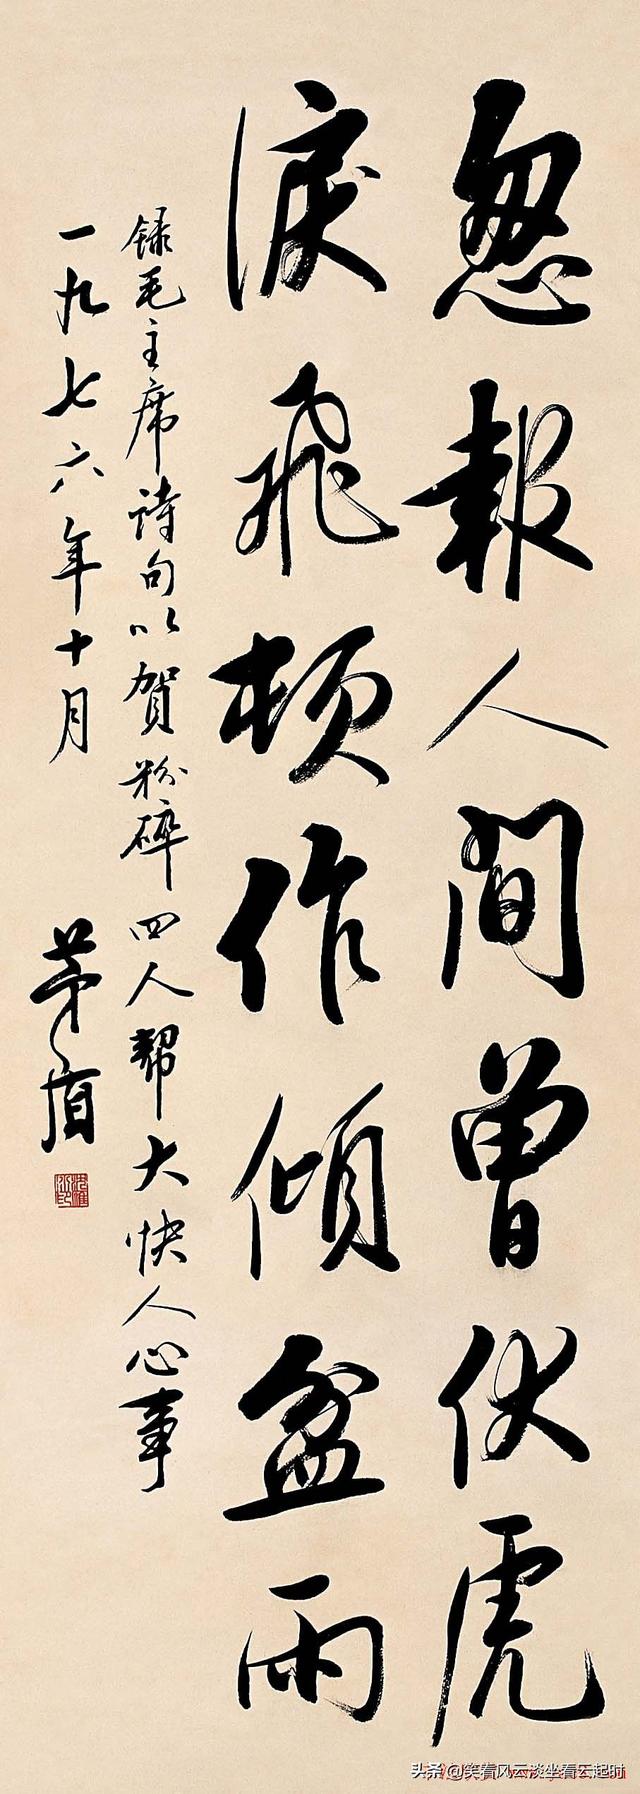 忽報人間曾伏虎
淚飛頓作傾盆雨
録毛主席诗句以賀粉碎四人幫大快人心事
一九七六年十月
茅盾
头条@笑看风云淡坐看云起时